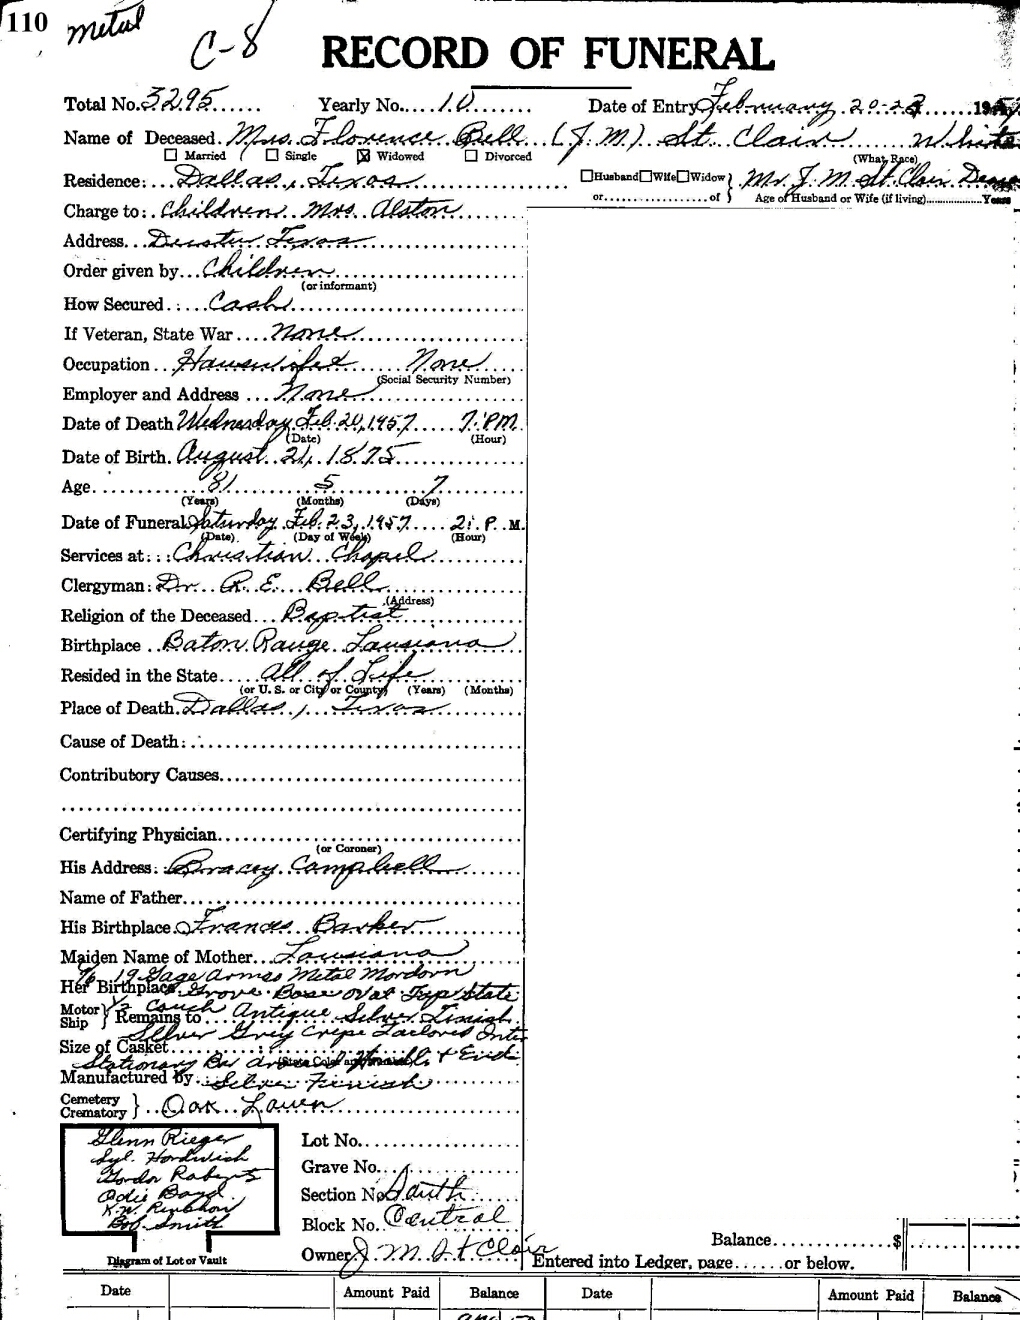 110 metal
C-8
RECORD OF FUNERAL
Total No. 3295 Yearly No. 10 Date of Entry February 20-23 195
Name of Deceased Mrs. Florence Bell (J.M.) St. Clair White
☐ Married ☐ Single ☒ Widowed ☐ Divorced (What Race)
Residence: Dallas, Texas ☐Husband☐Wife☐Widow} Mr J. M. St. Clair
or of } Age of Husband or Wife (if living) Years
Charge to: Children Mrs. Alston
Address Texas
Order given by Children
(or informant)
How Secured Cash
If Veteran, State War None
Occupation None
(Social Security Number)
Employer and Address None
Date of Death Wednesday Feb. 20, 1957 7: PM
(Date) (Hour)
Date of Birth August 21, 1875
Age 81 5 7
(Years) (Months) (Days)
Date of Funeral Saturday Feb. 23, 1957 2: P. M.
(Date) (Day of Week) (Hour)
Services at: Christian Chapel
Clergyman: Dr. R. E. Bell
(Address)
Religion of the Deceased Baptist
Birthplace Baton Rauge Lausiana
Resided in the State All of Life
(or U. S. or City or County) (Years) (Months)
Place of Death Dallas, Texas
Cause of Death:
Contributory Causes
Certifying Physician
(or Coroner)
His Address: Bracey Campbell
Name of Father
His Birthplace Frances Barker
Maiden Name of Mother Lausiana
19 Gage Armco Metal
Her Birthplace Grove Base Oval Top State
Couch Antique Silver Finish
Motor Ship } Remains to
Silver Grey Crepe Tailored Inter
Size of Casket
Stationary Bar & End
Manufactured by Silver Finish
Cemetery Crematory } Oak Lawn
Glenn Rieger
Syl. Hardwich
Gordon Roberts
Odie Boyd
K.W.
Bob Smith
Diagram of Lot or Vault
Lot No.
Grave No. 1
Section No. South
Block No. Central
Owner J M St Clair
Balance $
Entered into Ledger, page or below.
Date Amount Paid Balance Date Amount Paid Balance